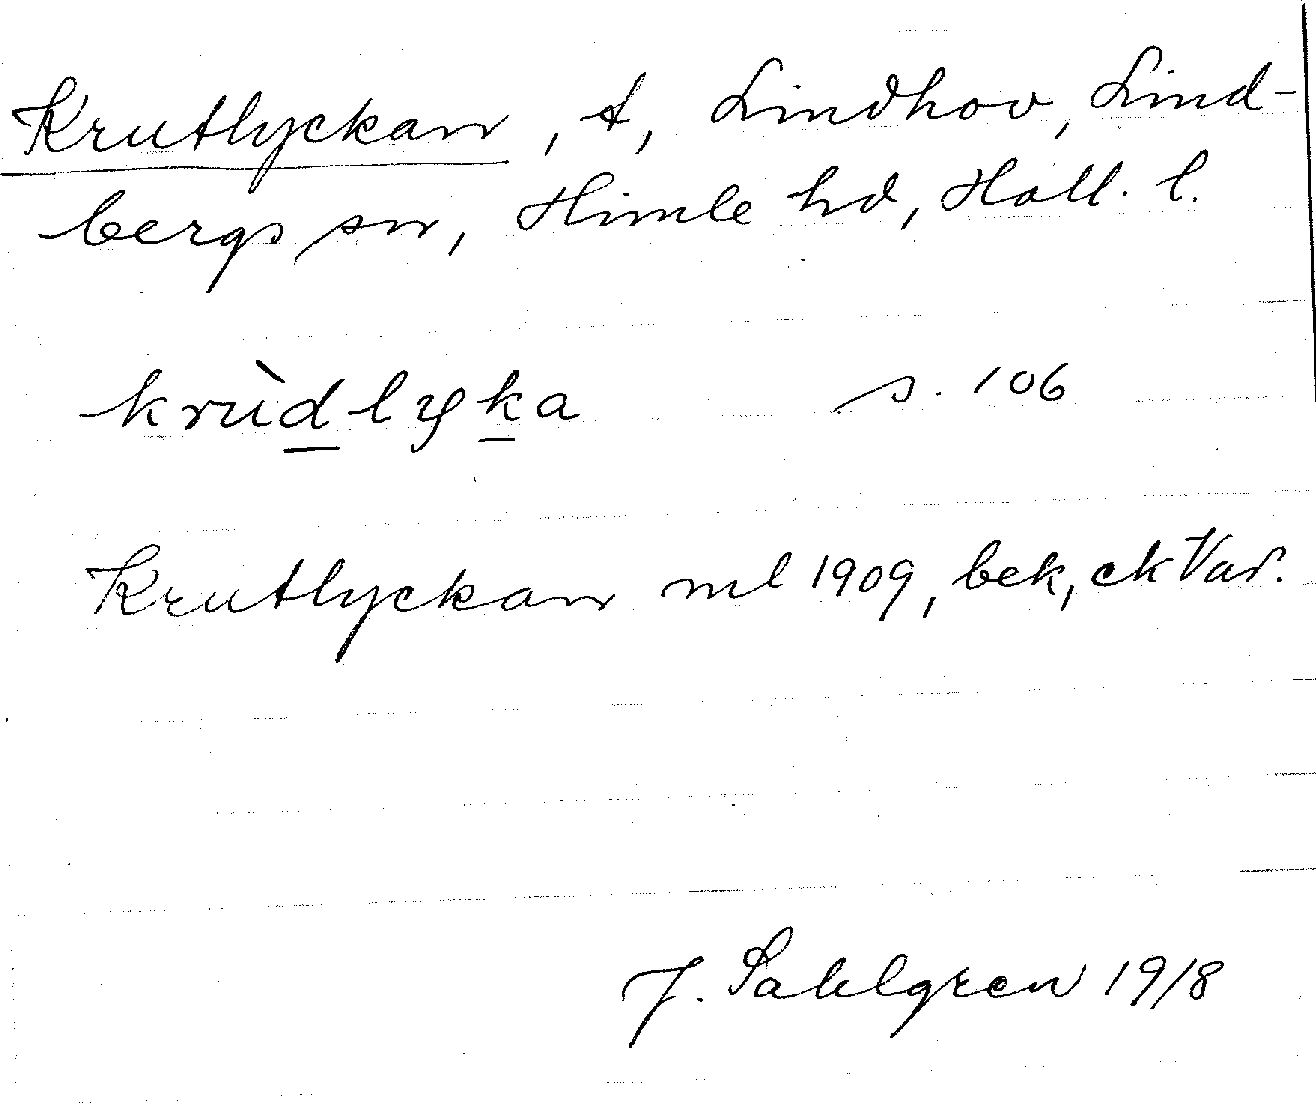 Krutlyckan, t, Lindhov, Lind-
bergs sn, Himle hd, Hall. l.
krùdlyka s. 106
Krutlyckan ml 1909, bek, ek Var.
J. Sahlgren 1918